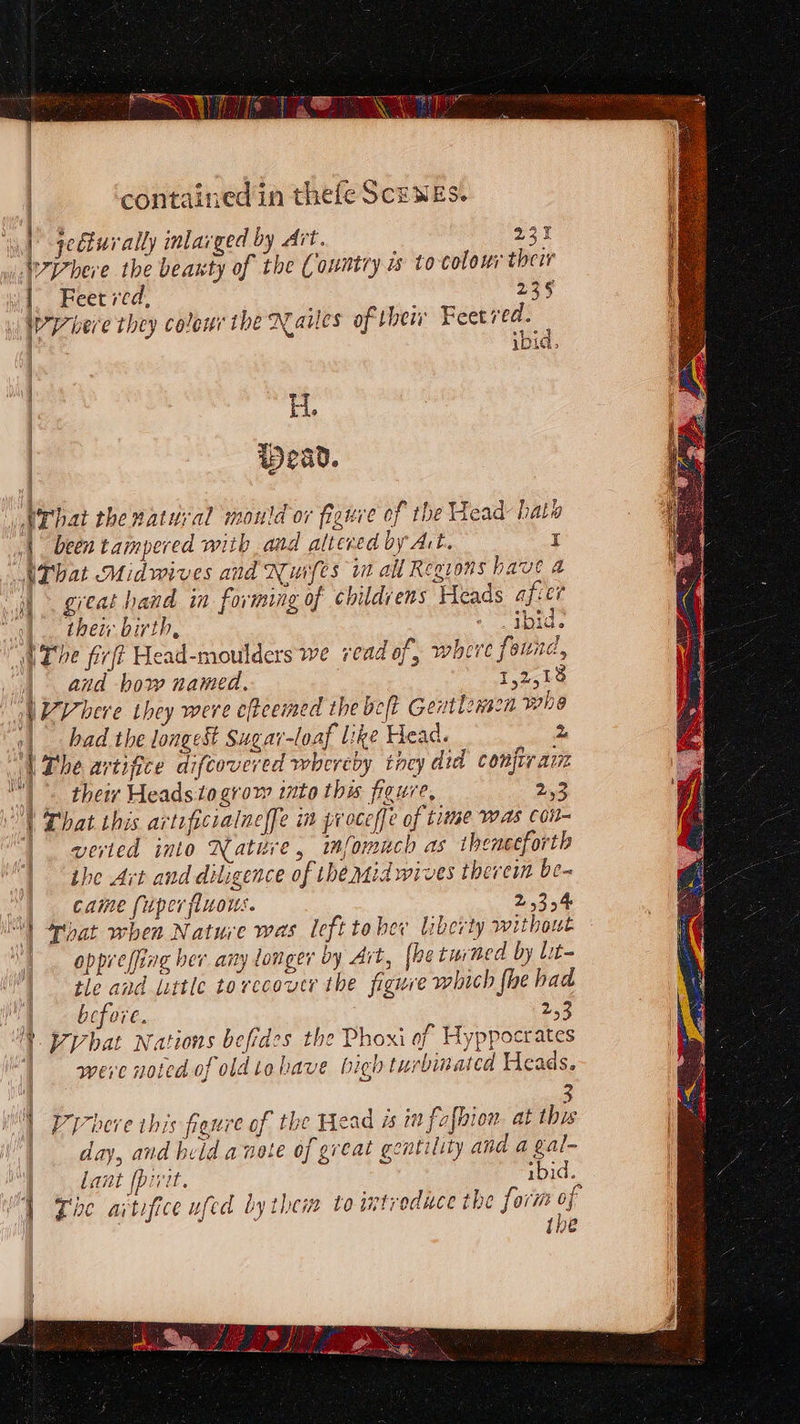 contained in theſe SCENES.
jecturally inlarged by Art. 231
VVhere the beauty of the Country is to colour their
Feet red, 235
VVhere they colour the Nailes of their Feet red.
ibid.
H.
Head.
That the natural mould or figure of the Head hath
been tampered with and altered by Art. 1
That Midwives and Nurſes in all Regions have a
great hand in forming of childrens Heads after
their birth, ibid.
The firſt Head-moulders we read of, where found,
and how named. 1,2,18
VVhere they were eſteemed the beſt Gentlemen who
had the longeſt Sugar-loaf like Head. 2
The artifice diſcovered whereby they did conſtrain
their Heads to grow into this figure, 2,3
That this artificialneſſe in proceſſe of time was con-
verted into Nature, inſomuch as thenceforth
the Art and diligence of the Midwives therein be-
came ſuperfluous. 2,3,4
That when Nature was left to her liberty without
oppreſſing her any longer by Art, ſhe turned by lit-
tle and little to recover the figure which ſhe had
before. 2,3
VVhat Nations beſides the Phoxi of Hyppocrates
were noted of old to have high turbinated Heads.
3
VVhere this figure of the Head is in faſhion at this
day, and held a note of great gentility and a gal-
lant ſpirit. ibid.
The artifice uſed by them to introduce the form of
the